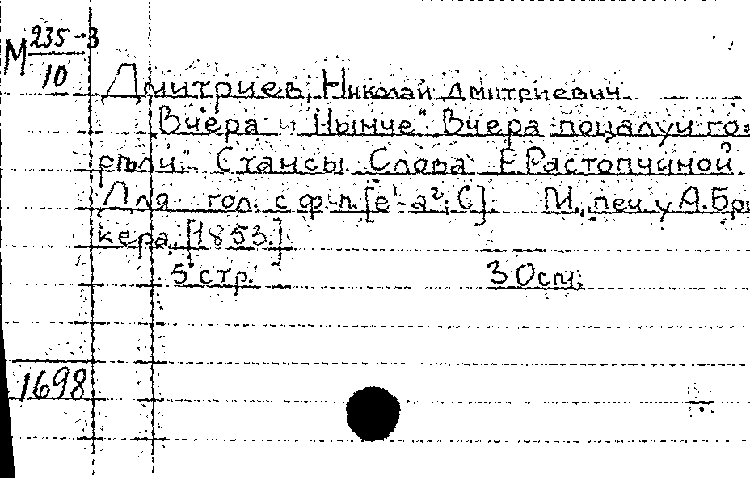 М 235-3
10
Дмитриев, Николай Дмитриевич
"Вчера и Нынче" "Вчера поцалуи го-
рели". Стансы. Слова Е. Растопчиной.
Для гол. с ф-п. [e¹-a²; C]. М., печ. у А. Бри
кера, [1853.]
5 стр. 30 см.
1698